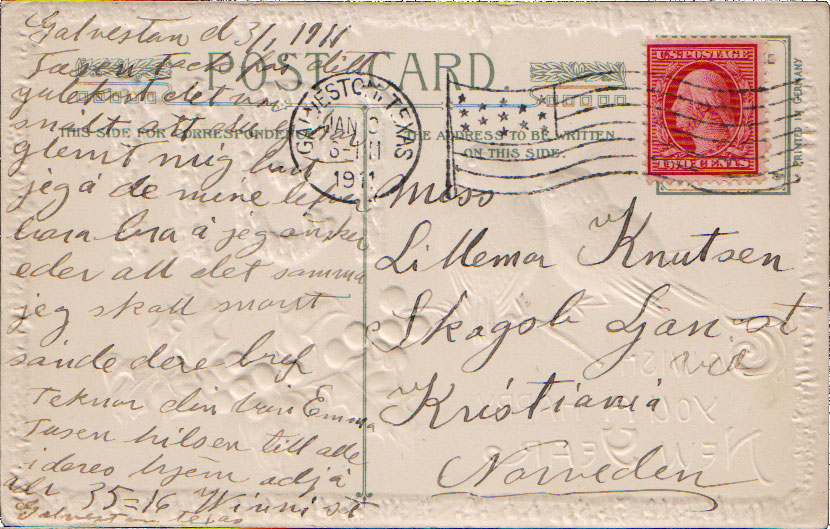 Galvestan d 3/1, 1911
POST CARD.
Tusen tack for ditt
julekort det var
snält att du
glemt mig
jeg å de mine lefva
bara bra å jeg önsker
eder all det samma
jeg skall snart
sände dere bref
Teknar din vän Emma
Tusen hilsen till alle
i deres hjem adjö
adr 35=16 Winni st
Galveston Texas
THIS SIDE FOR CORRESPONDENCE
THE ADDRESS TO BE WRITTEN
ON THIS SIDE.
GALVESTON, TEXAS
JAN 3
1911
U.S. POSTAGE
TWO CENTS
PRINTED IN GERMANY
Miss
Lillemor Knutsen
Skagob Gan-st
Kristiania
Norweden
I WISH
YOU A HAPPY
NEW YEAR